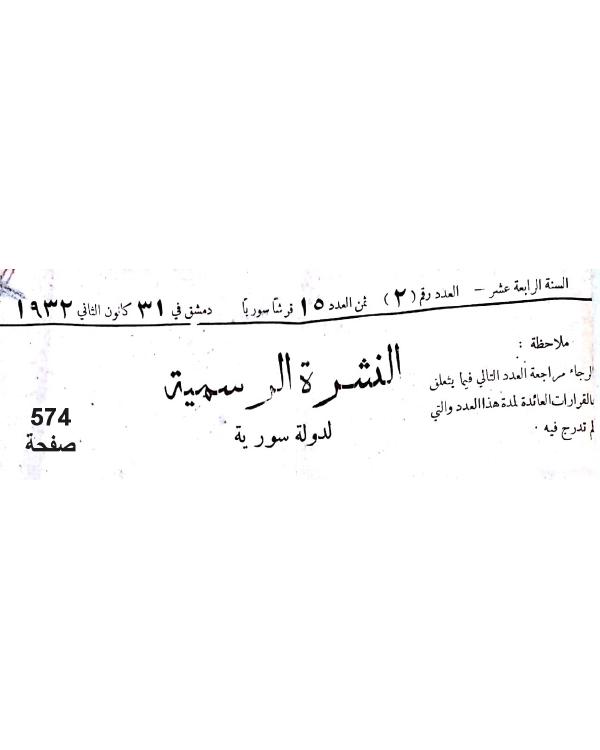 السنة الرابعة عشر – العدد رقم (٢) ثمن العدد ١٥ قرشاً سورياً دمشق في ٣١ كانون الثاني ١٩٣٢
ملاحظة :
الرجاء مراجعة العدد التالي فيما يتعلق
بالقرارات العائدة لمدة هذا العدد والتي
لم تدرج فيه .
النشرة الرسمية
لدولة سورية
574
صفحة